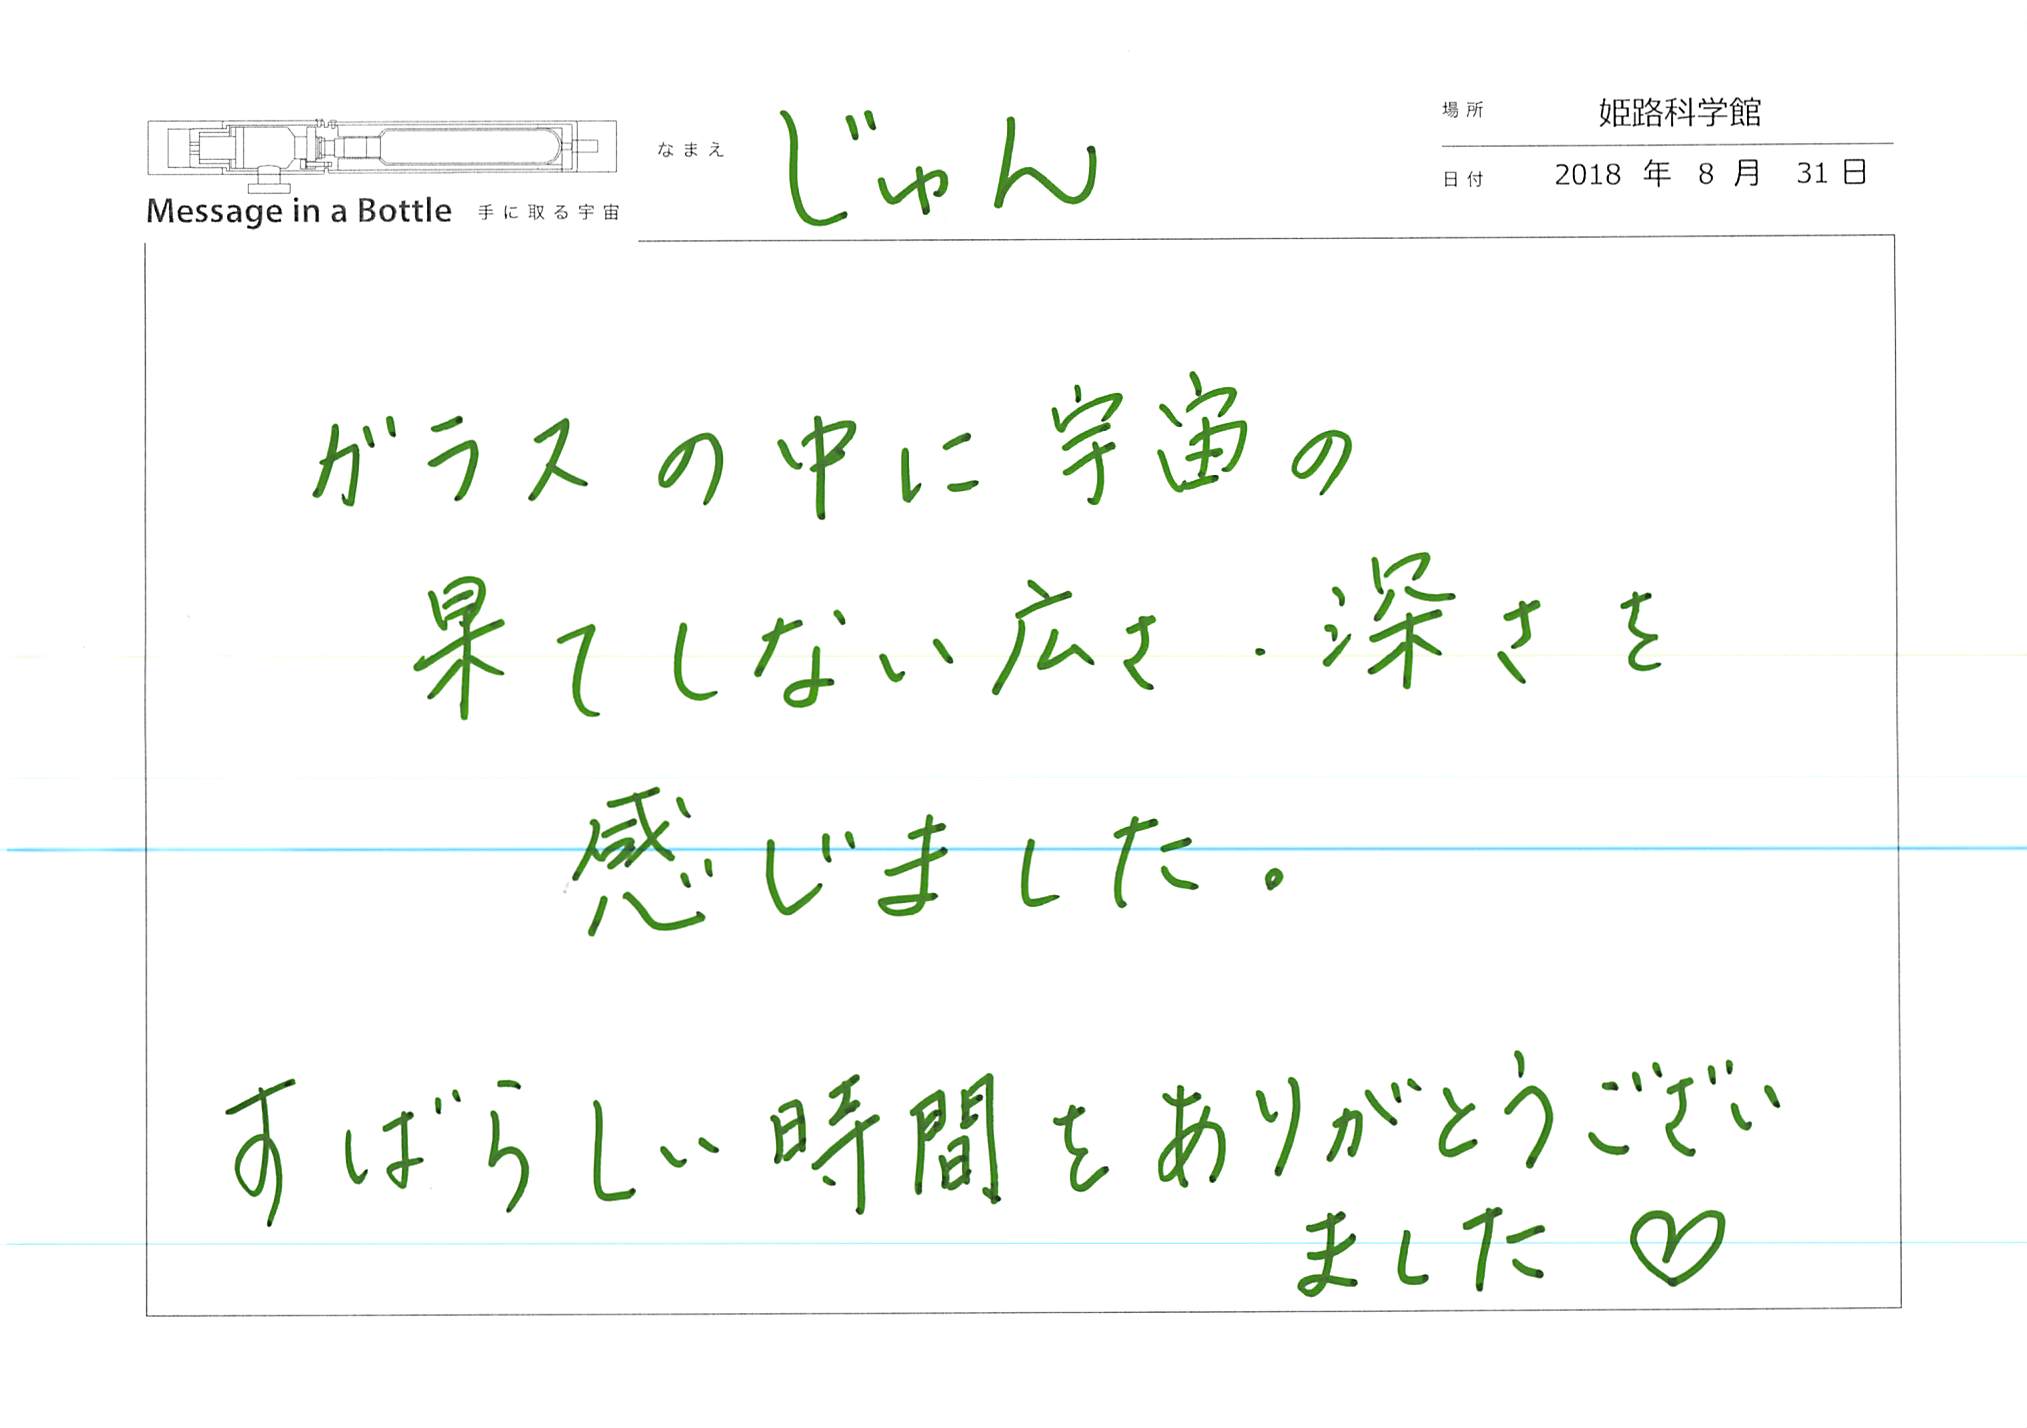 Message in a Bottle 手に取る宇宙
なまえ じゅん
場所 姫路科学館
日付 2018 年 8 月 31 日
ガラスの中に宇宙の
果てしない広さ・深さを
感じました。
すばらしい時間をありがとうござい
ました♡